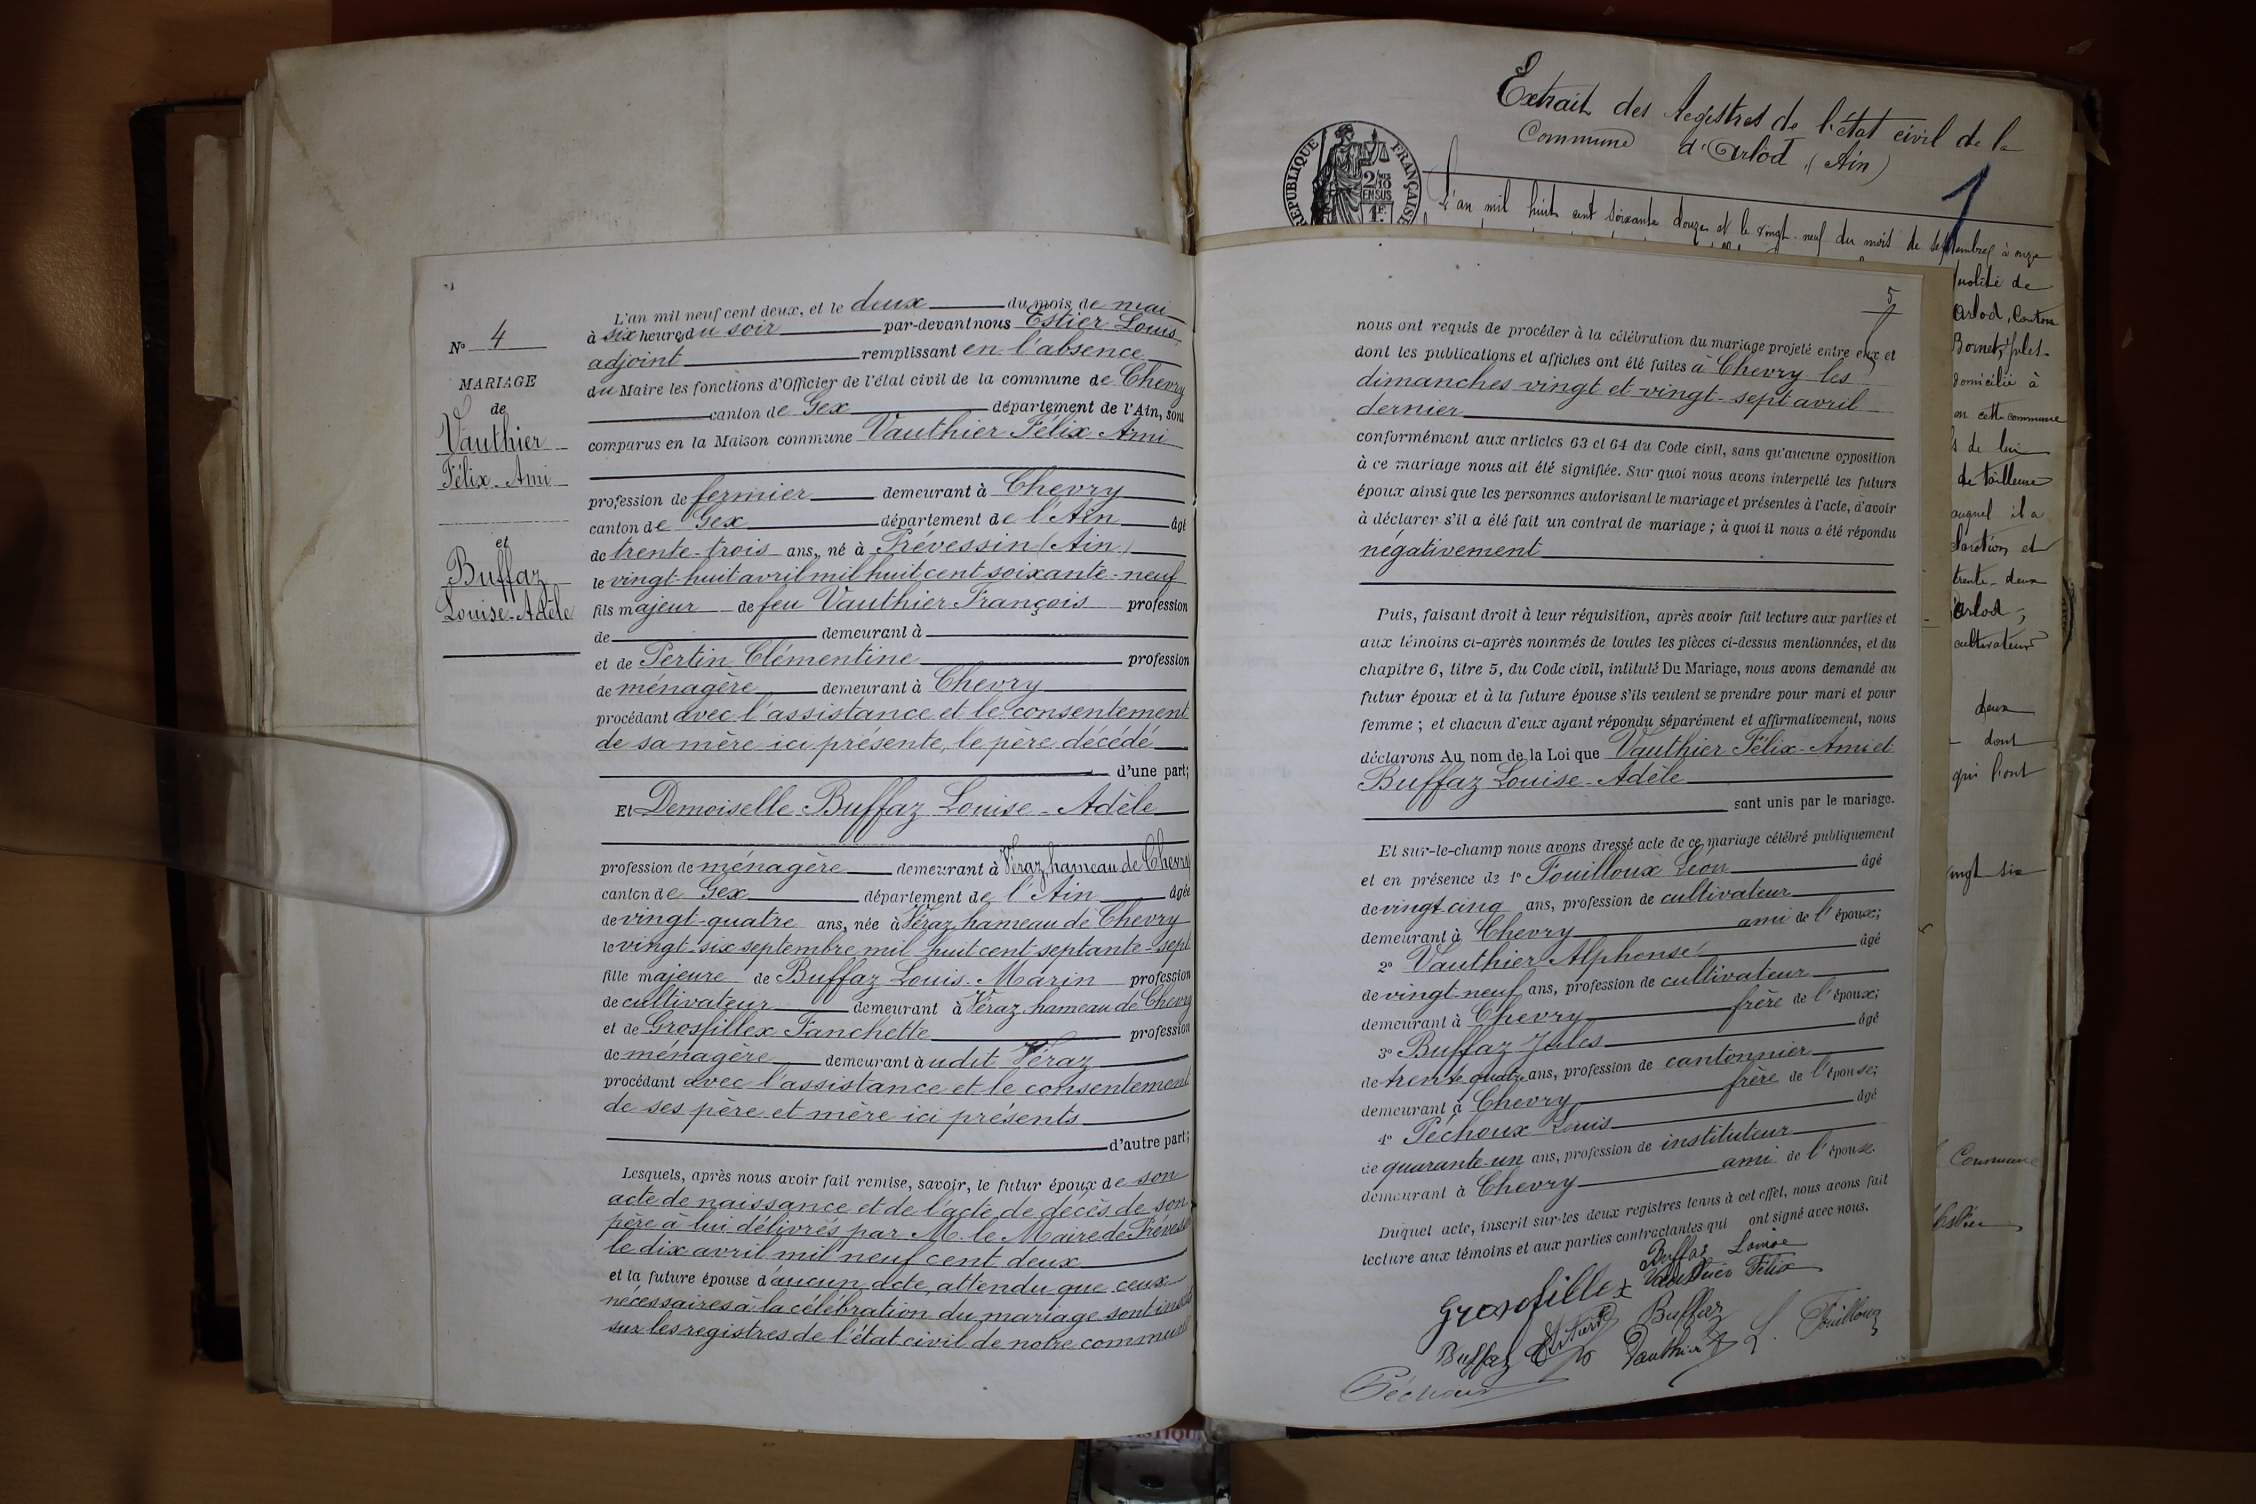 N° 4
MARIAGE
de
Vauthier
Félix-Ami
et
Buffaz
Louise-Adèle
L'an mil neuf cent deux, et le deux du mois de mai
à six heures du soir par-devant nous Estier Louis
adjoint remplissant en l'absence
du Maire les fonctions d'Officier de l'état civil de la commune de Chevry
canton de Gex département de l'Ain, sont
comparus en la Maison commune Vauthier Félix Ami
profession de fermier demeurant à Chevry
canton de Gex département de l'Ain âgé
de trente-trois ans, né à Prévessin (Ain)
le vingt-huit avril mil huit cent soixante-neuf
fils majeur de feu Vauthier François profession
de demeurant à
et de Pertin Clémentine profession
de ménagère demeurant à Chevry
procédant avec l'assistance et le consentement
de sa mère ici présente, le père décédé
d'une part;
Et Demoiselle Buffaz Louise-Adèle
profession de ménagère demeurant à Véraz, hameau de Chevry
canton de Gex département de l'Ain âgée
de vingt-quatre ans, née à Véraz, hameau de Chevry
le vingt-six septembre mil huit cent septante-sept
fille majeure de Buffaz Louis-Marin profession
de cultivateur demeurant à Véraz, hameau de Chevry
et de Grosfillex Fanchette profession
de ménagère demeurant à udit Véraz
procédant avec l'assistance et le consentement
de ses père et mère ici présents
d'autre part;
Lesquels, après nous avoir fait remise, savoir, le futur époux de son
acte de naissance et de l'acte de décès de son
père à lui délivrés par M. le Maire de Prévessin
le dix avril mil neuf cent deux
et la future épouse d'aucun acte, attendu que ceux
nécessaires à la célébration du mariage sont inscrits
sur les registres de l'état civil de notre commune
Extrait des registres de l'état civil de la
Commune d'Arlod (Ain)
1
REPUBLIQUE FRANÇAISE
2/10
EN SUS
1F.
L'an mil huit cent soixante douze et le vingt-neuf du mois de septembre à onze
5
nous ont requis de procéder à la célébration du mariage projeté entre eux et
dont les publications et affiches ont été faites à Chevry les
dimanches vingt et vingt-sept avril
dernier
conformément aux articles 63 et 64 du Code civil, sans qu'aucune opposition
à ce mariage nous ait été signifiée. Sur quoi nous avons interpellé les futurs
époux ainsi que les personnes autorisant le mariage et présentes à l'acte, d'avoir
à déclarer s'il a été fait un contrat de mariage; à quoi il nous a été répondu
négativement
Puis, faisant droit à leur réquisition, après avoir fait lecture aux parties et
aux témoins ci-après nommés de toutes les pièces ci-dessus mentionnées, et du
chapitre 6, titre 5, du Code civil, intitulé Du Mariage, nous avons demandé au
futur époux et à la future épouse s'ils veulent se prendre pour mari et pour
femme; et chacun d'eux ayant répondu séparément et affirmativement, nous
déclarons Au nom de la Loi que Vauthier Félix-Ami et
Buffaz Louise-Adèle
sont unis par le mariage.
Et sur-le-champ nous avons dressé acte de ce mariage célébré publiquement
et en présence de 1° Fouilloux Léon âgé
de vingt-cinq ans, profession de cultivateur
demeurant à Chevry ami de l'époux;
2° Vauthier Alphonse âgé
de vingt-neuf ans, profession de cultivateur
demeurant à Chevry frère de l'époux;
3° Buffaz Jules âgé
de trente quatre ans, profession de cantonnier
demeurant à Chevry frère de l'épouse;
4° Péchoux Louis âgé
de quarante-un ans, profession de instituteur
demeurant à Chevry ami de l'épouse.
Duquel acte, inscrit sur les deux registres tenus à cet effet, nous avons fait
lecture aux témoins et aux parties contractantes qui ont signé avec nous.
Buffaz Louise
Grosfillex Vauthier Félix
Buffaz
Buffaz Vauthier L. Fouilloux
Péchoux
qualité de
Arlod, Canton
domicilié à
en cette commune
s de lui
de tailleur
auquel il a
trente-deux
Arlod,
cultivateur
deux
dont
qui l'ont
vingt six
Commune